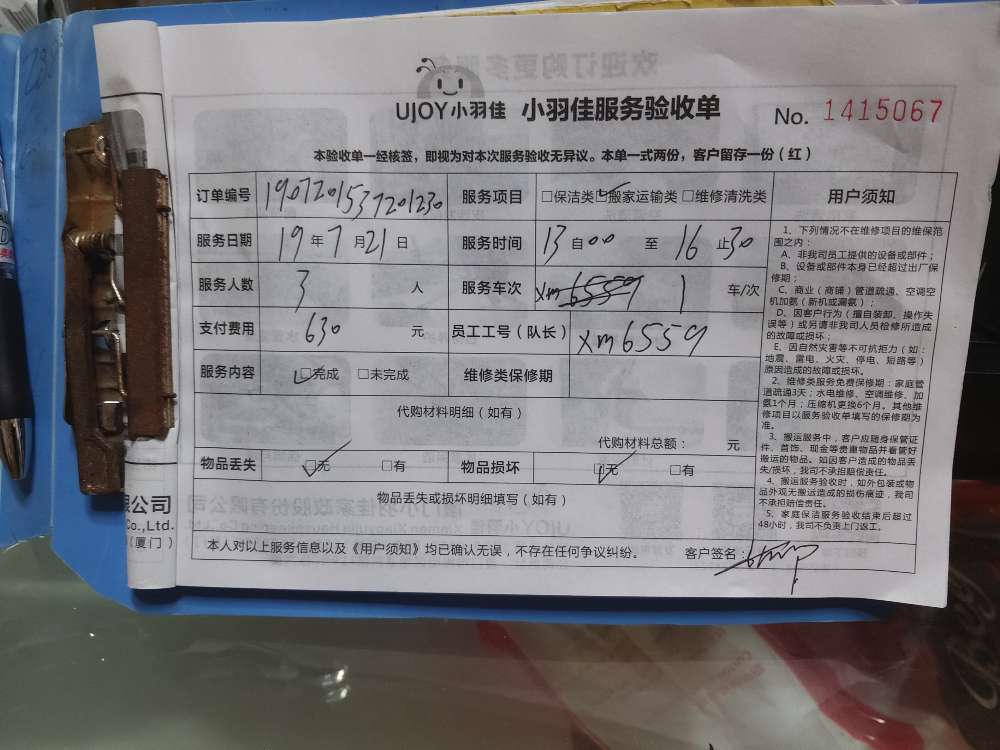 UJOY小羽佳 小羽佳服务验收单 No. 1415067
本验收单一经核签，即视为对本次服务验收无异议。本单一式两份，客户留存一份（红）
订单编号 1907201537201230 服务项目 □保洁类 ☑搬家运输类 □维修清洗类
服务日期 19年7月21日 服务时间 13自00 至 16止30
服务人数 3 人 服务车次 1 车/次
支付费用 630 元 员工工号（队长） xm6559
服务内容 ☑完成 □未完成 维修类保修期
代购材料明细（如有）
代购材料总额： 元
物品丢失 ☑无 □有 物品损坏 ☑无 □有
物品丢失或损坏明细填写（如有）
本人对以上服务信息以及《用户须知》均已确认无误，不存在任何争议纠纷。 客户签名：
用户须知
1、下列情况不在维修项目的维保范
围之内：
A、非我司员工提供的设备或部件；
B、设备或部件本身已经超过出厂保
修期；
C、商业（商铺）管道疏通、空调空
机加氨（新机或漏氨）；
D、因客户行为（擅自装卸、操作失
误等）或另请非我司人员检修所造成
的故障或损坏；
E、因自然灾害等不可抗拒力（如：
地震、雷电、火灾、停电、短路等）
原因造成的故障或损坏。
2、维修类服务免费保修期：家庭管
道疏通3天；水电维修、空调维修、加
氨1个月；压缩机更换6个月。其他维
修项目以服务验收单填写的保修期为
准。
3、搬运服务中，客户应随身保管证
件、首饰、现金等贵重物品并看管好
搬运的物品。如因客户造成的物品丢
失/损坏，我司不承担赔偿责任。
4、搬运服务验收时，如外包装或物
品外观无搬运造成的损伤痕迹，我司
不承担赔偿责任。
5、家庭保洁服务验收结束后超过
48小时，我司不负责上门返工。
限公司
Co.,Ltd.
（厦门）